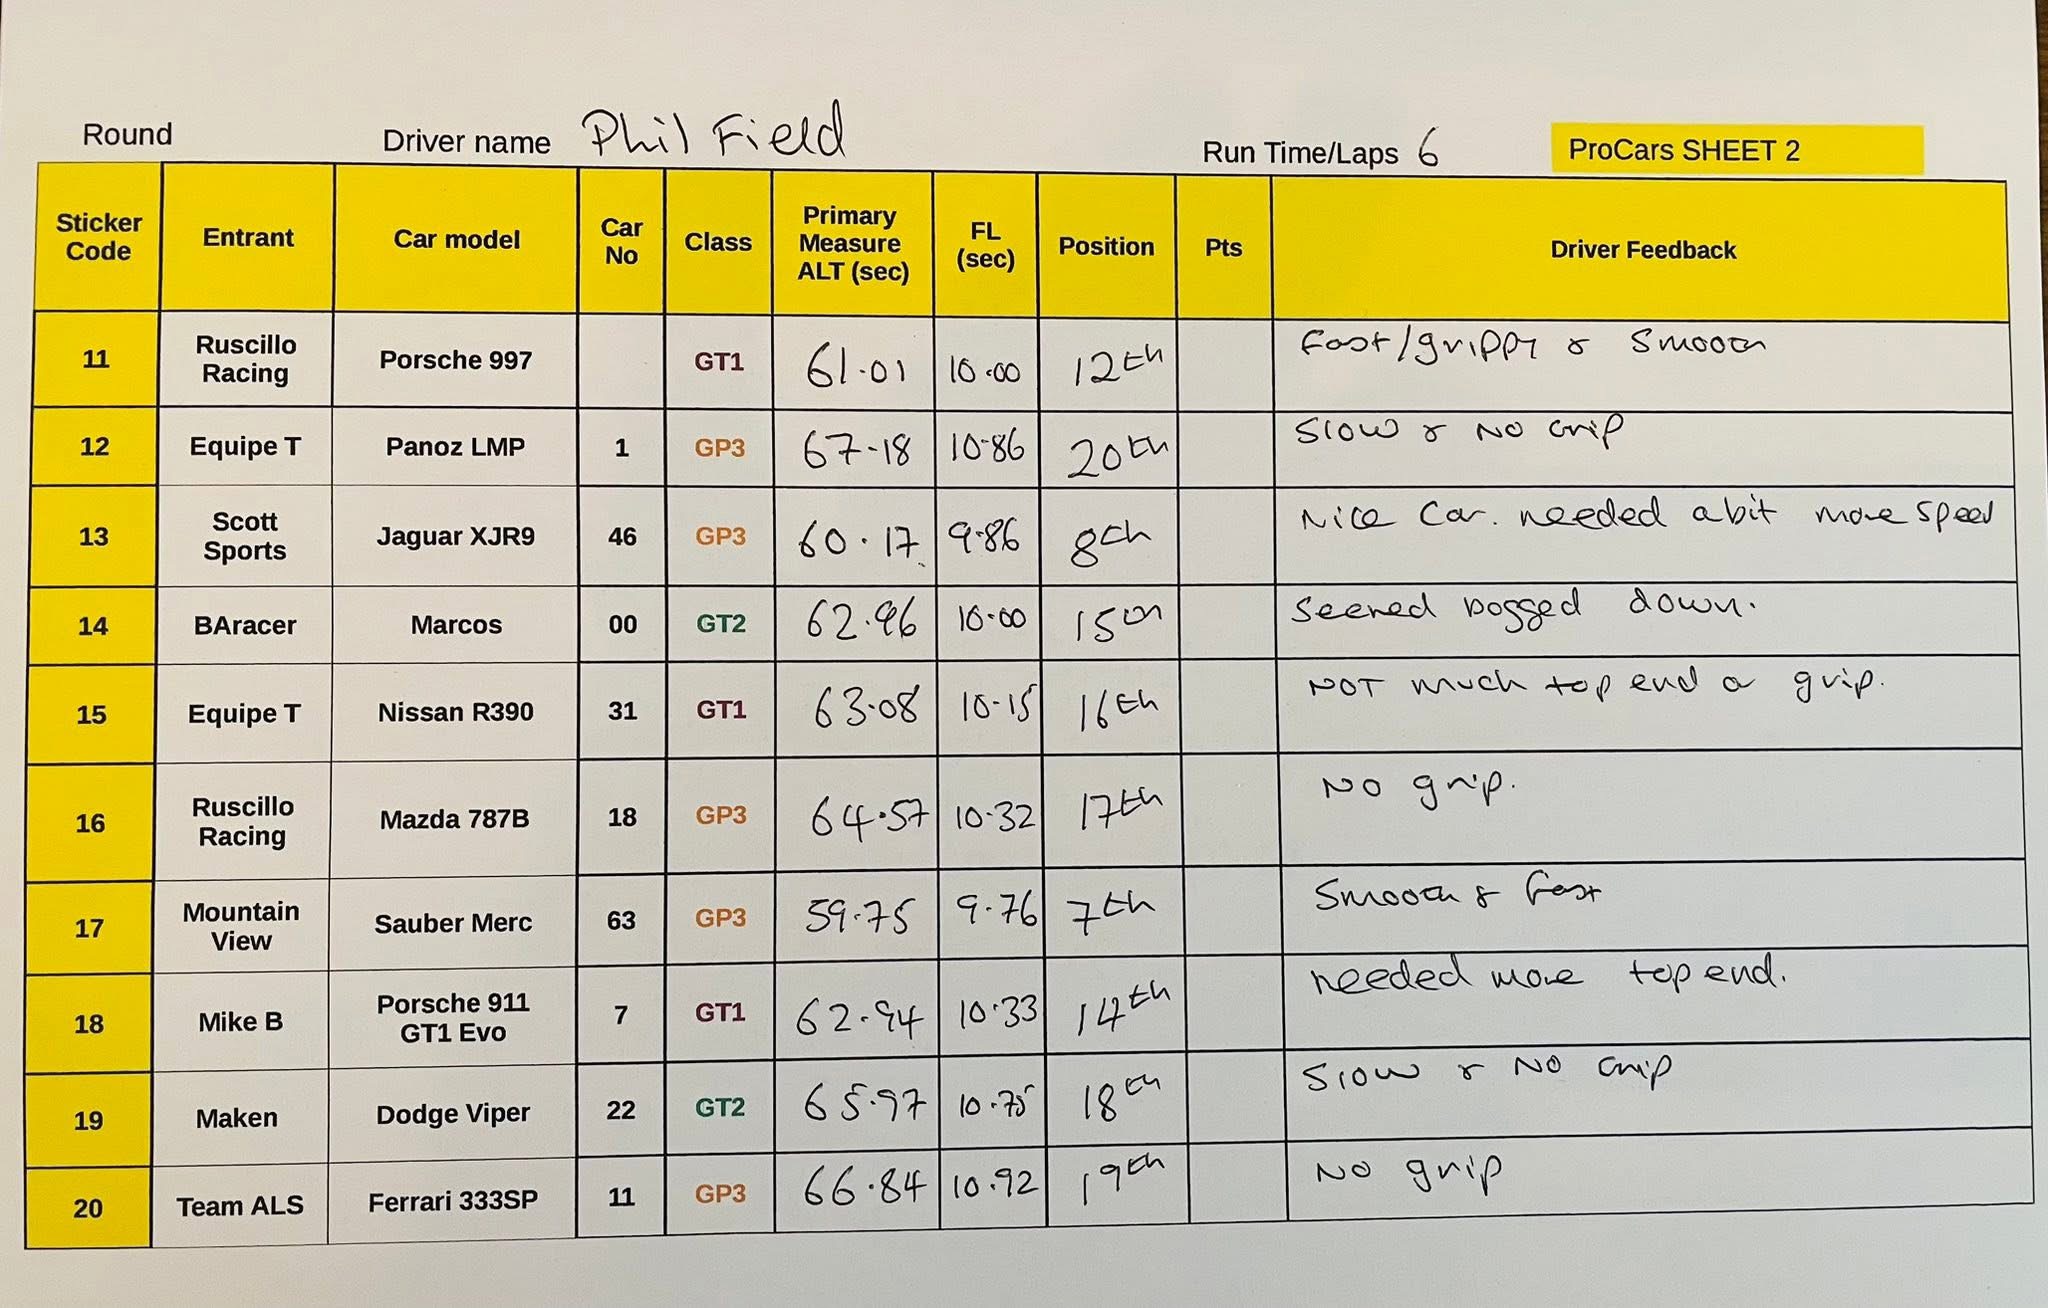 Round Driver name Phil Field Run Time/Laps 6 ProCars SHEET 2
Sticker Code Entrant Car model Car No Class Primary Measure ALT (sec) FL (sec) Position Pts Driver Feedback
11 Ruscillo Racing Porsche 997 GT1 61.01 10.00 12th Fast/grippy & Smooth
12 Equipe T Panoz LMP 1 GP3 67.18 10.86 20th Slow & No Grip
13 Scott Sports Jaguar XJR9 46 GP3 60.17 9.86 8th Nice Car. needed a bit more speed
14 BAracer Marcos 00 GT2 62.96 10.00 15th Seemed bogged down.
15 Equipe T Nissan R390 31 GT1 63.08 10.15 16th NOT much top end or grip.
16 Ruscillo Racing Mazda 787B 18 GP3 64.57 10.32 17th No grip.
17 Mountain View Sauber Merc 63 GP3 59.75 9.76 7th Smooth & Fast
18 Mike B Porsche 911 GT1 Evo 7 GT1 62.94 10.33 14th needed more top end.
19 Maken Dodge Viper 22 GT2 65.97 10.75 18th Slow & No Grip
20 Team ALS Ferrari 333SP 11 GP3 66.84 10.92 19th No grip